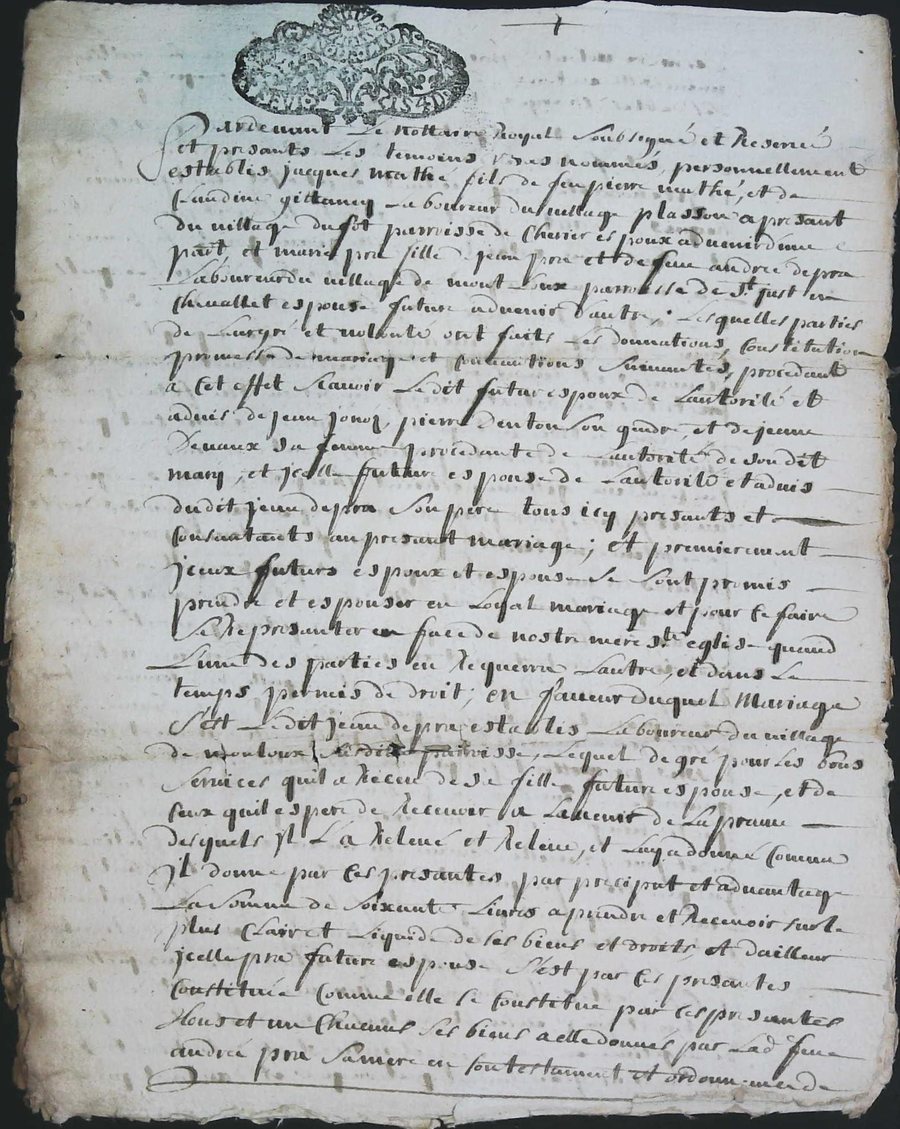 Pardevant Le Nottaire Royal Soubsigné et Reservé
et presants Les temoins nommés, personnellement
establis jacques mathé fils de feu pierre mathé, et de
Claudine gittancy Laboureur du village plasson a presant
du village du fot parroisse de Cherier espoux advenir dune
part, et marie pra fille de jean pra et de feue andree depra
Laboureur du village de mont Loux parroisse de St just en
Chevallet espouse future advenir dautre; Lesquelles parties
de Leur gré et volonté ont faits Les donnations, Constitution
promesse de mariage et Conventions Suivantes, procedant
a Cet effet Scavoir Ledit futur espoux de Lautorité et
advis de jean pierre Denton Son gendre, et de jeanne
Devaux sa femme procedante de Lautorité de son dit
mary, et jcelle future espouse de Lautorité et advis
du dit jean depra Son pere tous icy presants et
Consentants au presant mariage; et premierement
jceux futurs espoux et espouse Se Sont promis
prendre et espouser en Loyal mariage et pour Ce faire
Se Represanter en face de nostre mere Ste eglise quand
Lune des parties en Requerra Lautre, et dans Le
temps permis de droit; en faveur duquel Mariage
S'est Ledit jean depra establis Laboureur du village
de montloux parroisse, Lequel de gré pour Les bons
Services quil a Receu de sa fille future espouse, et de
Ceux quil espere de Recevoir a Lavenir de La preuve
desquels jl La Relevé et Releve, et Luy a donné Comme
jl donne par Ces presantes par preciput et advantage
La Somme de Soixante Livres a prendre et Recevoir sur Le
plus Clair et Liquide de Ses biens et droits, et dailleur
jcelle pra future espouse S'est par Ces presantes
Constituée Comme elle Se Constitue par Ces presantes
Tous et un Chacuns Ses biens a elle donnés par Lad. feue
andrée pra Sa mere en Son testament et ordonnance de